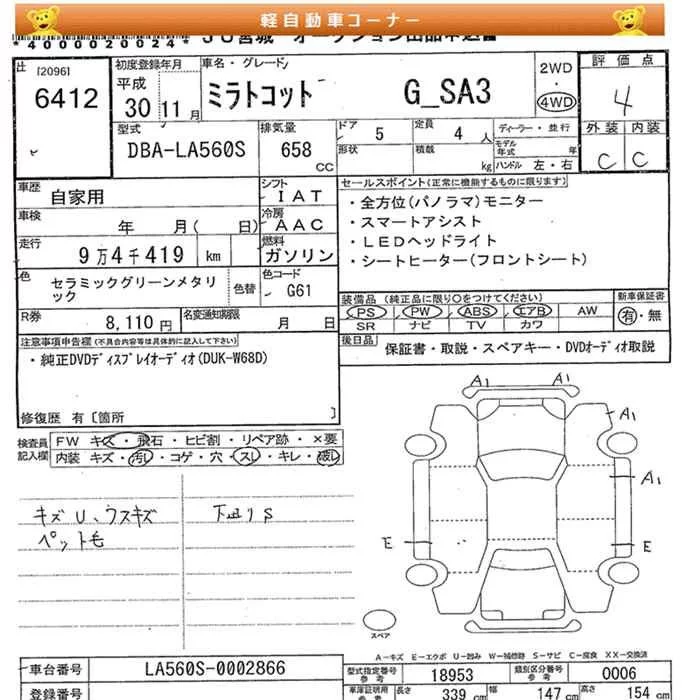 軽自動車コーナー
*4000020024* JU宮城 オークション出品申込書
出 [2096]
6412
初度登録年月
平成
30 11 月
車名・グレード
ミラトコット G_SA3
2WD
・
4WD
評価点
4
外装 内装
C C
型式
DBA-LA560S
排気量
658
CC
ドア 5
形状
定員 4 人
積載 kg
ディーラー・並行
モデル年式 年
ハンドル 左・右
車歴
自家用
シフト
IAT
車検
年 月( 日)
冷房
AAC
走行
9万4千419 km
燃料
ガソリン
色
セラミックグリーンメタリック
色替
色コード
G61
R券
8,110 円
名変通知期限
月 日
セールスポイント(正常に機能するものに限ります)
・全方位(パノラマ)モニター
・スマートアシスト
・LEDヘッドライト
・シートヒーター(フロントシート)
装備品(純正品に限り○をつけてください)
PS PW ABS エアB AW
SR ナビ TV カワ
新車保証書
有・無
後日品
保証書・取説・スペアキー・DVDオーディオ取説
注意事項申告欄(不具合内容等は具体的に記入して下さい)
・純正DVDディスプレイオーディオ(DUK-W68D)
修復歴 有〔箇所 〕
検査員
記入欄
FW キズ・飛石・ヒビ割・リペア跡・×要
内装 キズ・汚れ・コゲ・穴・スレ・キレ・破れ
キズU、ウスキズ
ペット毛
下廻りS
A1 A1
A1
A1
E E
スペア
A-キズ E-エクボ U-凹み W-補修跡 S-サビ C-腐食 XX-交換済
車台番号
LA560S-0002866
登録番号
型式指定番号
参考
18953
類別区分番号
参考
0006
車庫証明用
参考
長さ 339 cm
幅 147 cm
高さ 154 cm